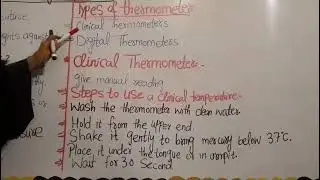 Types of thermometer
Clinical Thermometers
Digital Thermometers
Clinical Thermometer-
give manual reading
Steps to use a clinical temperature-
Wash the thermometer with clean water
Hold it from the upper end.
Shake it gently to bring mercury below 37°C.
Place it under the tongue or in armpit.
Wait for 30 Second